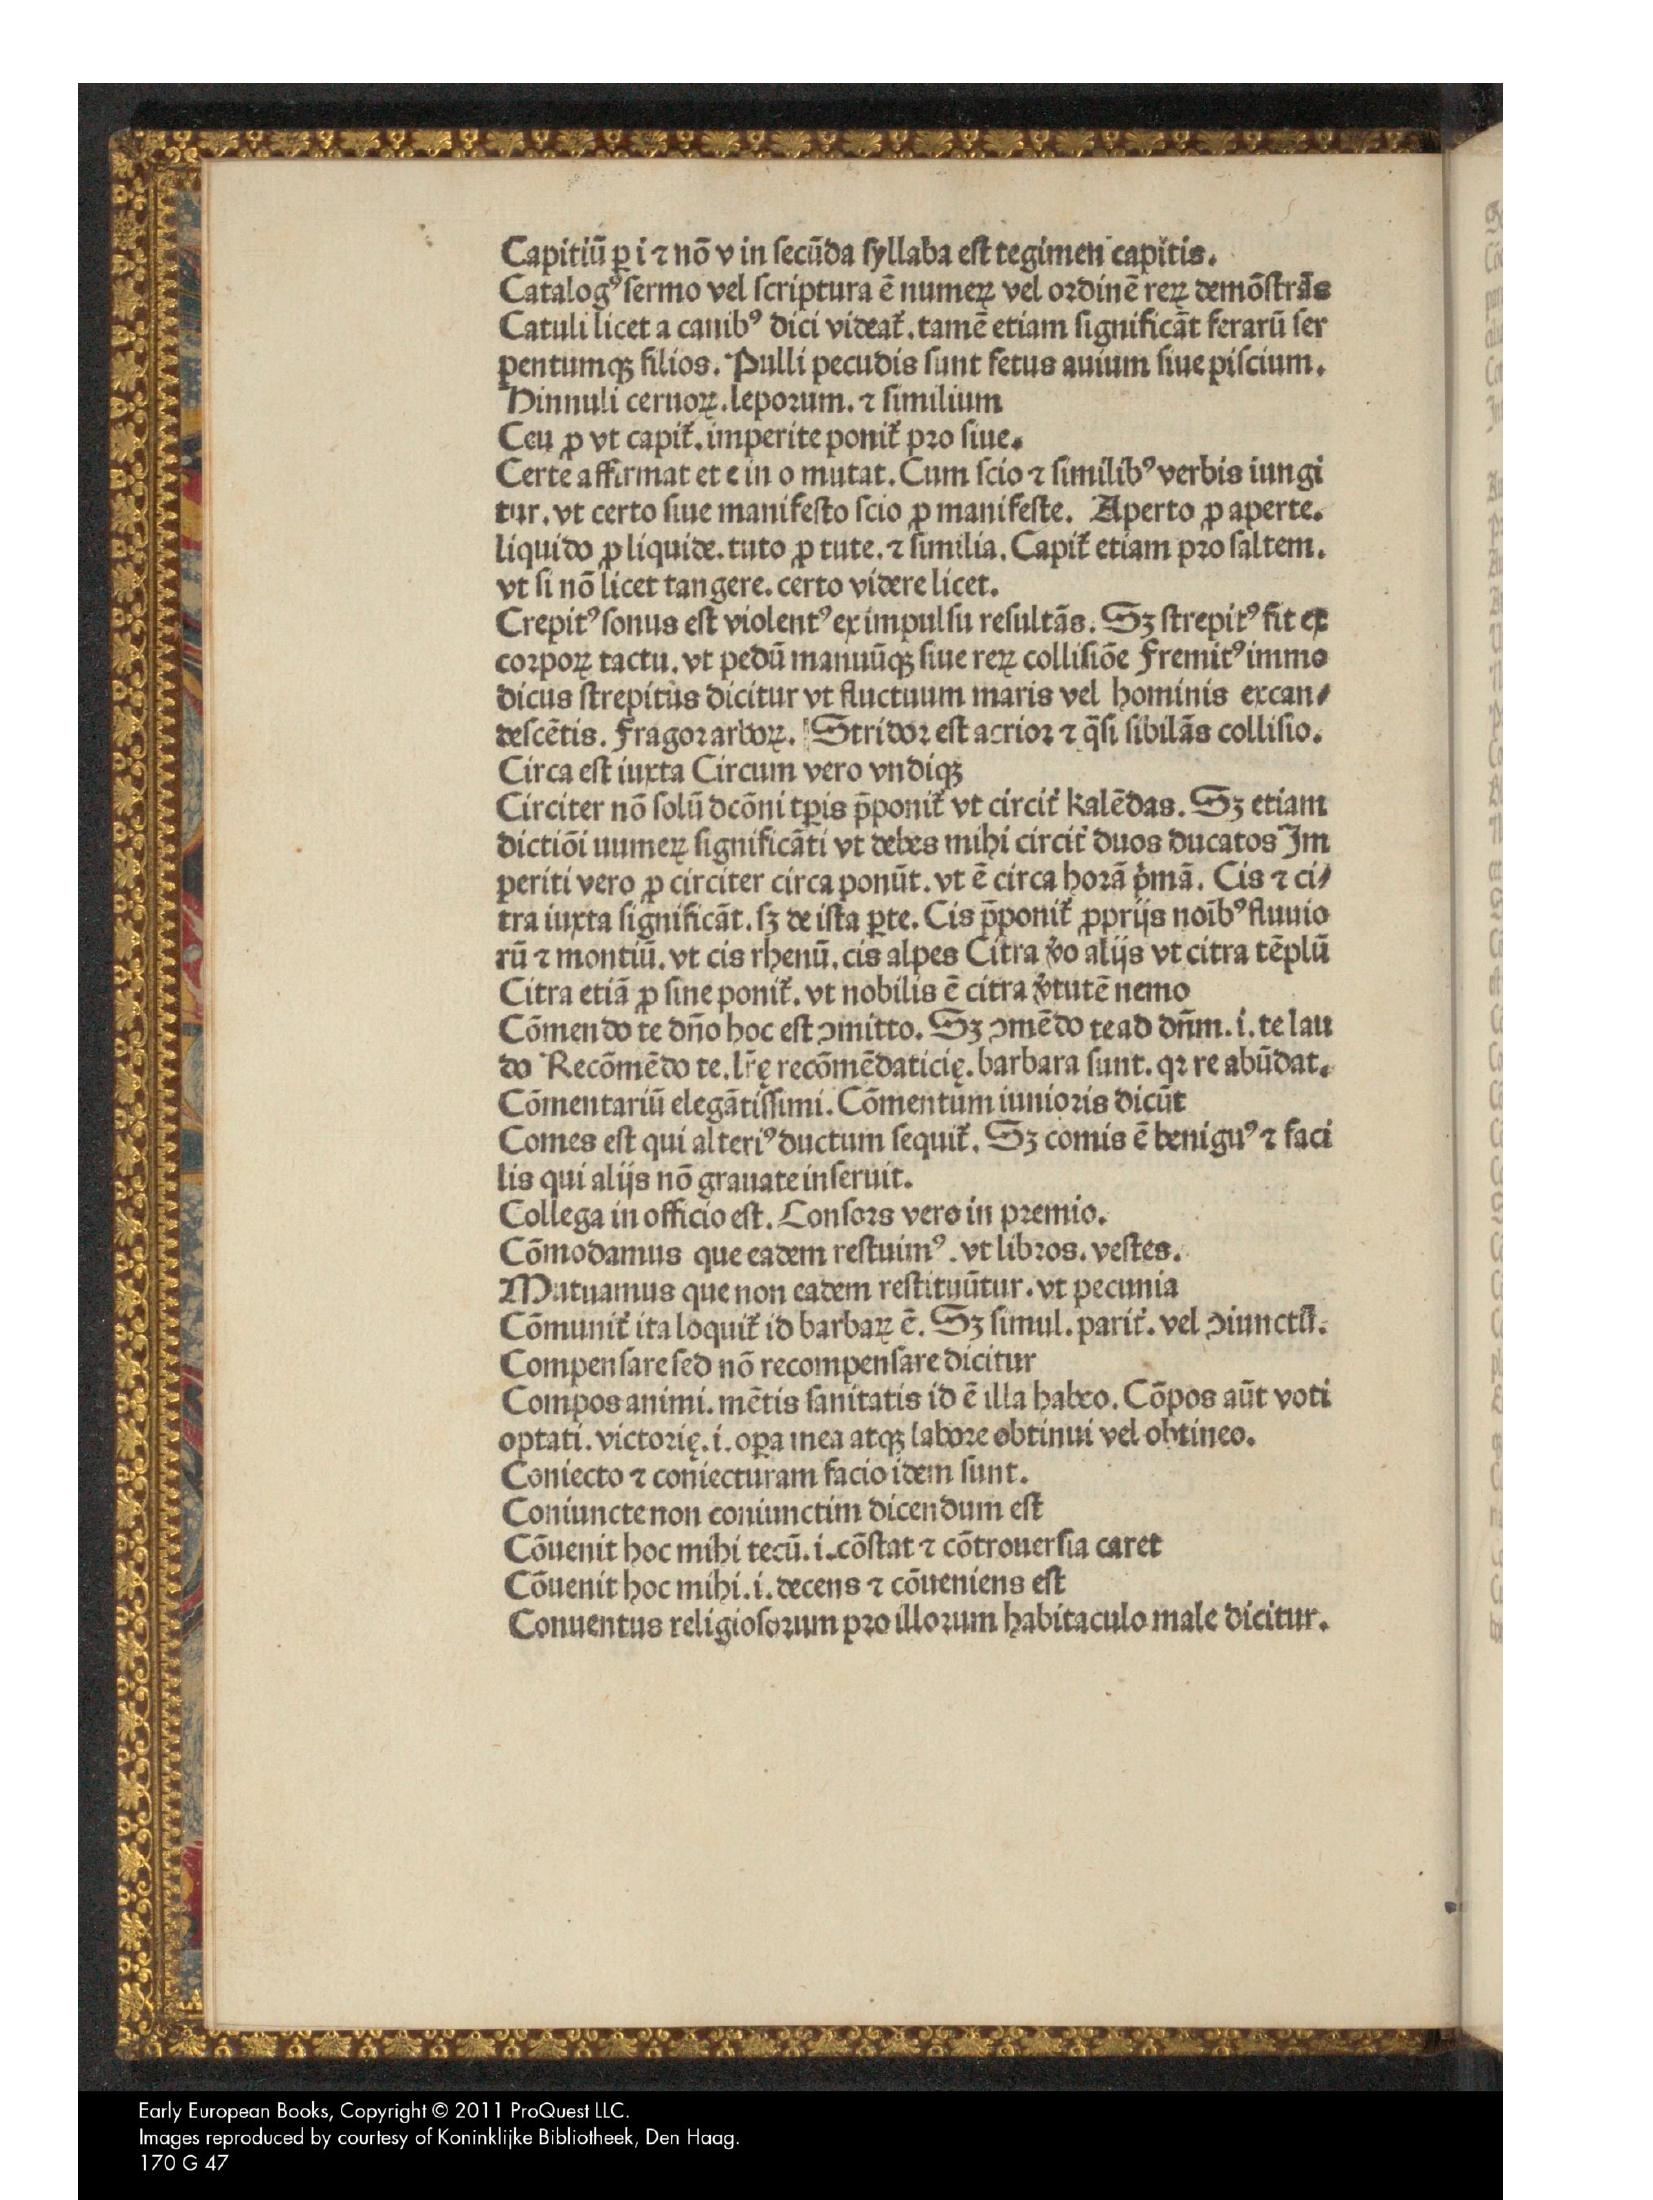 Capitiū ꝑ i ⁊ nō v in ſecūda ſyllaba eſt tegimen capitis.
Catalogꝰ ſermo vel ſcriptura ē numeꝝ vel ordinē reꝝ demōſtrās
Catuli licet a canibꝰ dici videat᷑. tamē etiam ſignificāt ferarū ſer
pentumqꝫ filios. Pulli pecudis ſunt fetus auium ſiue piſcium.
Hinnuli ceruoꝝ. leporum. ⁊ ſimilium
Ceu ꝓ vt capit᷑. imperite ponit᷑ pro ſiue.
Certe affirmat et e in o mutat. Cum ſcio ⁊ ſimilibꝰ verbis iungi
tur. vt certo ſiue manifeſto ſcio ꝓ manifeſte. Aperto ꝓ aperte.
liquido ꝓ liquide. tuto ꝓ tute. ⁊ ſimilia. Capit᷑ etiam pro ſaltem.
vt ſi nō licet tangere. certo videre licet.
Crepitꝰ ſonus eſt violentꝰ ex impulſu reſultās. Sꝫ ſtrepitꝰ fit ex
corpoꝝ tactu. vt pedū manuūqꝫ ſiue reꝝ colliſiōe Fremitꝰ immo
dicus ſtrepitus dicitur vt fluctuum maris vel hominis excan⸗
deſcētis. Fragor arboꝝ. Stridor eſt acrior ⁊ q̄ſi ſibilās colliſio.
Circa eſt iuxta Circum vero vndiqꝫ
Circiter nō ſolū dcōni tꝑis p̄ponit᷑ vt circit᷑ kalēdas. Sꝫ etiam
dictiōi uumeꝝ ſignificāti vt debes mihi circit᷑ duos ducatos Im
periti vero ꝓ circiter circa ponūt. vt ē circa horā pͥmā. Cis ⁊ ci⸗
tra iuxta ſignificāt. ſꝫ de iſta ꝑte. Cis p̄ponit᷑ ꝓprijs noībꝰ fluuio
rū ⁊ montiū. vt cis rhenū. cis alpes Citra v̓o alijs vt citra tēplū
Citra etiā ꝓ ſine ponit᷑. vt nobilis ē citra v̓tutē nemo
Cōmendo te dn̄o hoc eſt ꝯmitto. Sꝫ ꝯmēdo te ad dn̄m. i. te lau
do Recōmēdo te. lr̄ę recōmēdaticię. barbara ſunt. qꝛ re abūdat.
Cōmentariū elegātiſſimi. Cōmentum iunioris dicūt
Comes eſt qui alteriꝰ ductum ſequit᷑. Sꝫ comis ē beniguꝰ ⁊ faci
lis qui alijs nō grauate inſeruit.
Collega in officio eſt. Conſors vero in premio.
Cōmodamus que eadem reſtuimꝰ. vt libros. veſtes.
Mutuamus que non eadem reſtituūtur. vt pecunia
Cōmunit᷑ ita loquit᷑ id barbaꝝ ē. Sꝫ ſimul. parit᷑. vel ꝯiunctī.
Compenſare ſed nō recompenſare dicitur
Compos animi. mētis ſanitatis id ē illa habeo. Cōpos aūt voti
optati. victorię. i. oꝑa mea atqꝫ labore obtinui vel obtineo.
Coniecto ⁊ coniecturam facio idem ſunt.
Coniuncte non coniunctim dicendum eſt
Cōuenit hoc mihi tecū. i. cōſtat ⁊ cōtrouerſia caret
Cōuenit hoc mihi. i. decens ⁊ cōueniens eſt
Conuentus religioſorum pro illorum habitaculo male dicitur.
Early European Books, Copyright © 2011 ProQuest LLC.
Images reproduced by courtesy of Koninklijke Bibliotheek, Den Haag.
170 G 47